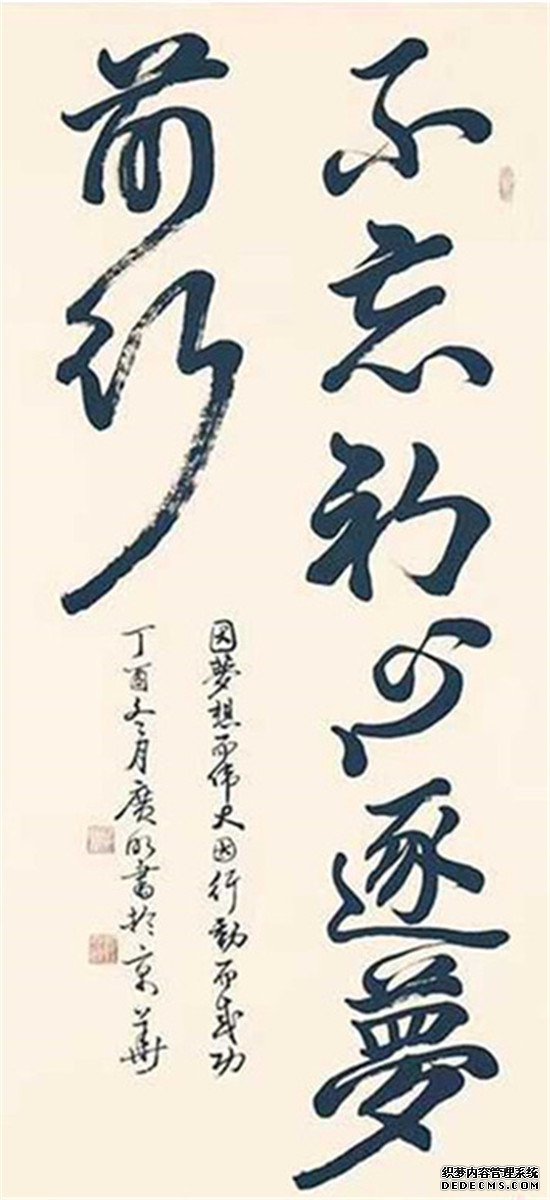 不忘初心逐夢
前行
因夢想而伟大因行動而成功
丁酉冬月廣明書於京華
织梦内容管理系统
DEDECMS.COM